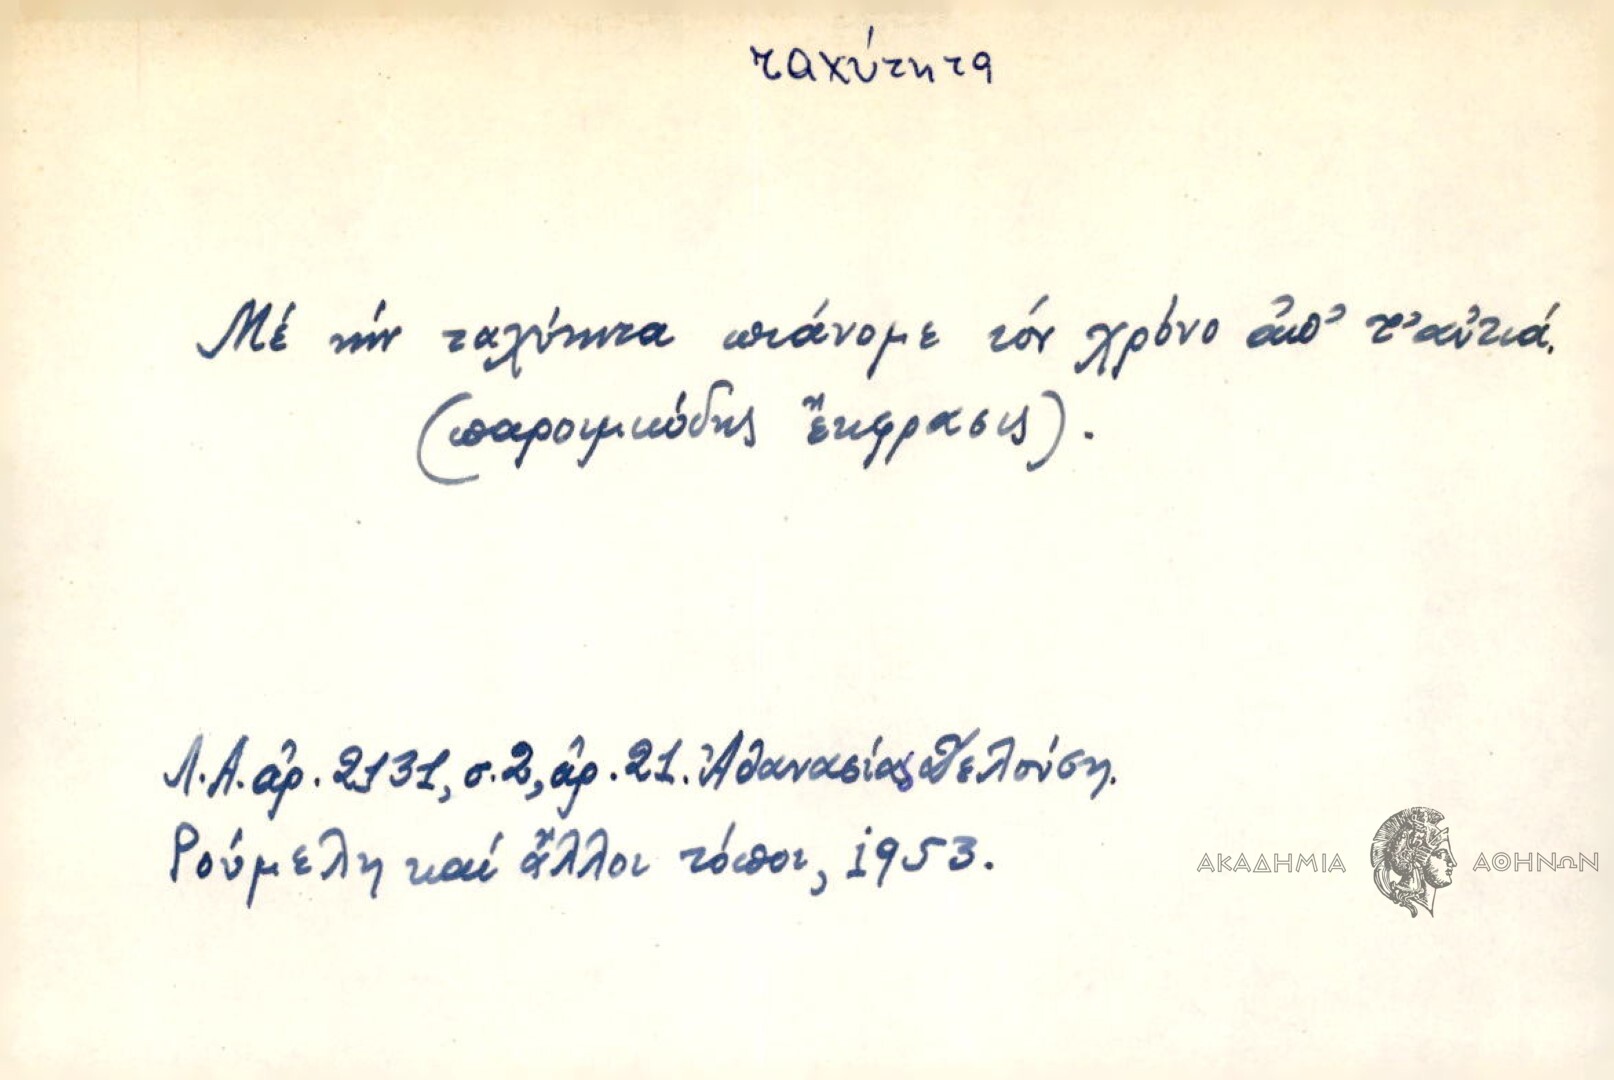 ταχύτητα
Μέ τήν ταχύτητα πιάνομε τόν χρόνο ἀπ' τ' αὐτιά.
(παροιμιώδης ἔκφρασις).
Λ.Α. ἀρ. 2131, σ. 2, ἀρ. 21. Ἀθανασίας Τελούση.
Ρούμελη καί ἄλλοι τόποι, 1953.
ΑΚΑΔΗΜΙΑ ΑΘΗΝΩΝ